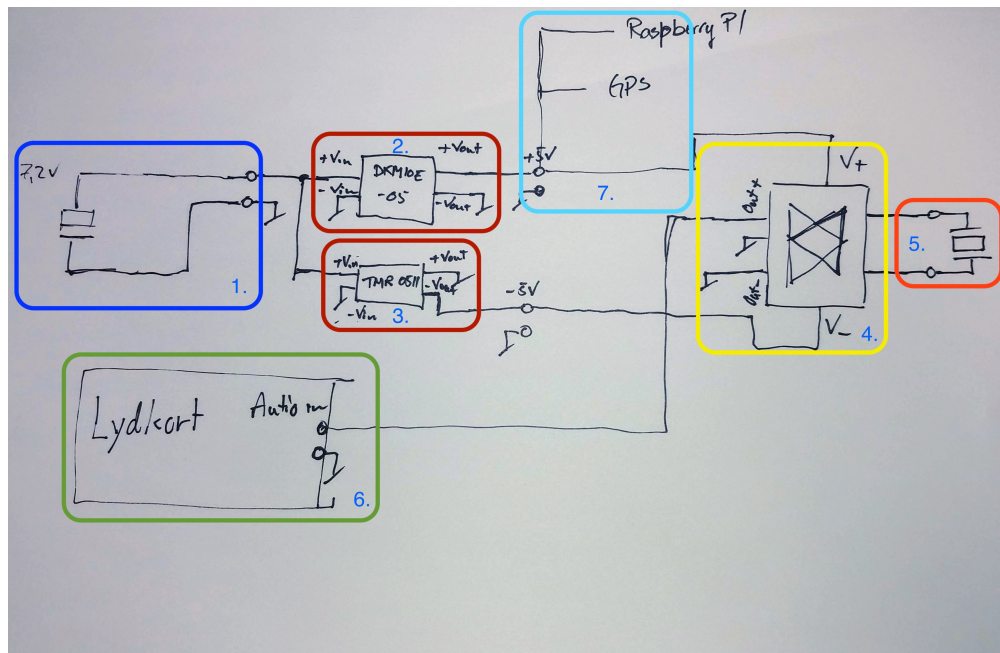 Raspberry PI
GPS
7,2V
1.
+Vin
-Vin
2.
DKM10E
-05
+Vout
-Vout
+5V
7.
+Vin
-Vin
TMR 0511
3.
+Vout
-Vout
-5V
V+
Out+
Out-
V-
4.
5.
Lydkort
Autio in
6.